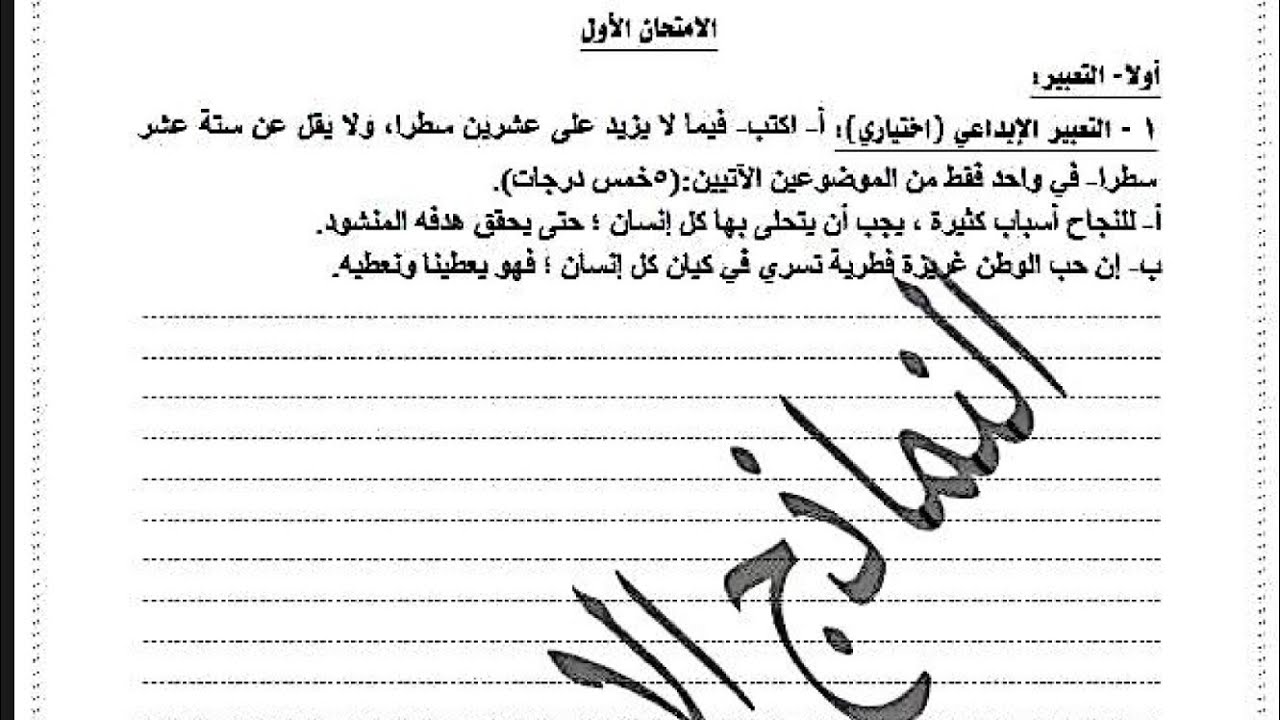 الامتحان الأول
أولا- التعبير:
١ - التعبير الإبداعي (اختياري): أ- اكتب- فيما لا يزيد على عشرين سطرا، ولا يقل عن ستة عشر
سطرا- في واحد فقط من الموضوعين الآتيين:(٥خمس درجات).
أ- للنجاح أسباب كثيرة ، يجب أن يتحلى بها كل إنسان ؛ حتى يحقق هدفه المنشود.
ب- إن حب الوطن غريزة فطرية تسري في كيان كل إنسان ؛ فهو يعطينا ونعطيه.
النماذج